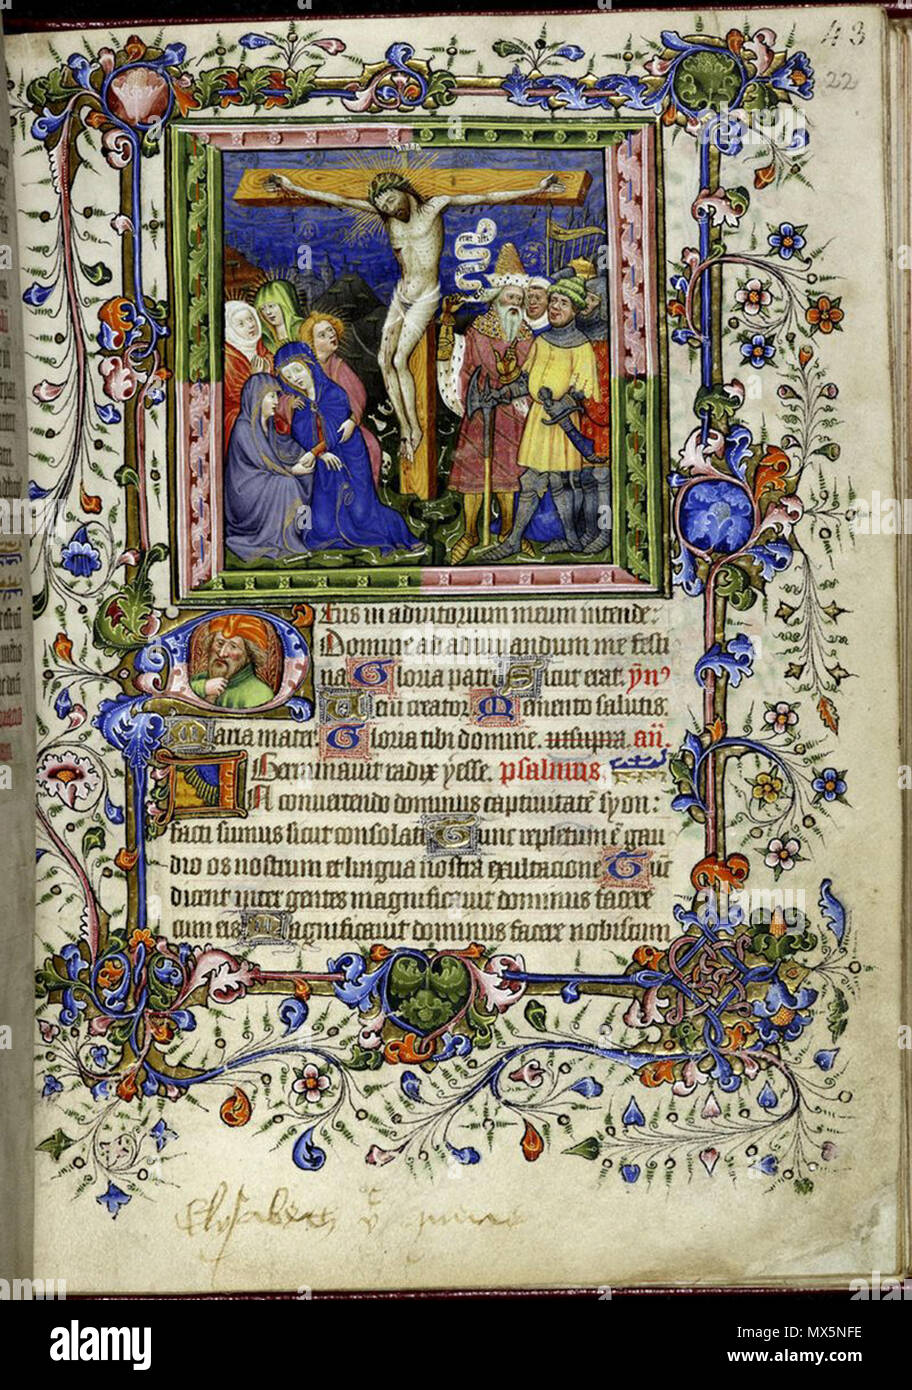 43
22
Deus in adiutorium meum intende:
Domine ad adiuuandum me festi
na Gloria patri Sicut erat. ymˀ
Veni creator Memento salutis.
Maria mater. Gloria tibi domine. utsupra. an̄.
Germinauit radix yesse. psalmus.
In conuertendo dominus captiuitatē syon:
facti sumus sicut consolati Tunc repletum ē gau
dio os nostrum et lingua nostra exultacione Tūc
dicent inter gentes magnificauit dominus facere
cum eis Magnificauit dominus facere nobiscum
Elysabeth yͤ quene
alamy stock photo
MX5NFE
www.alamy.com